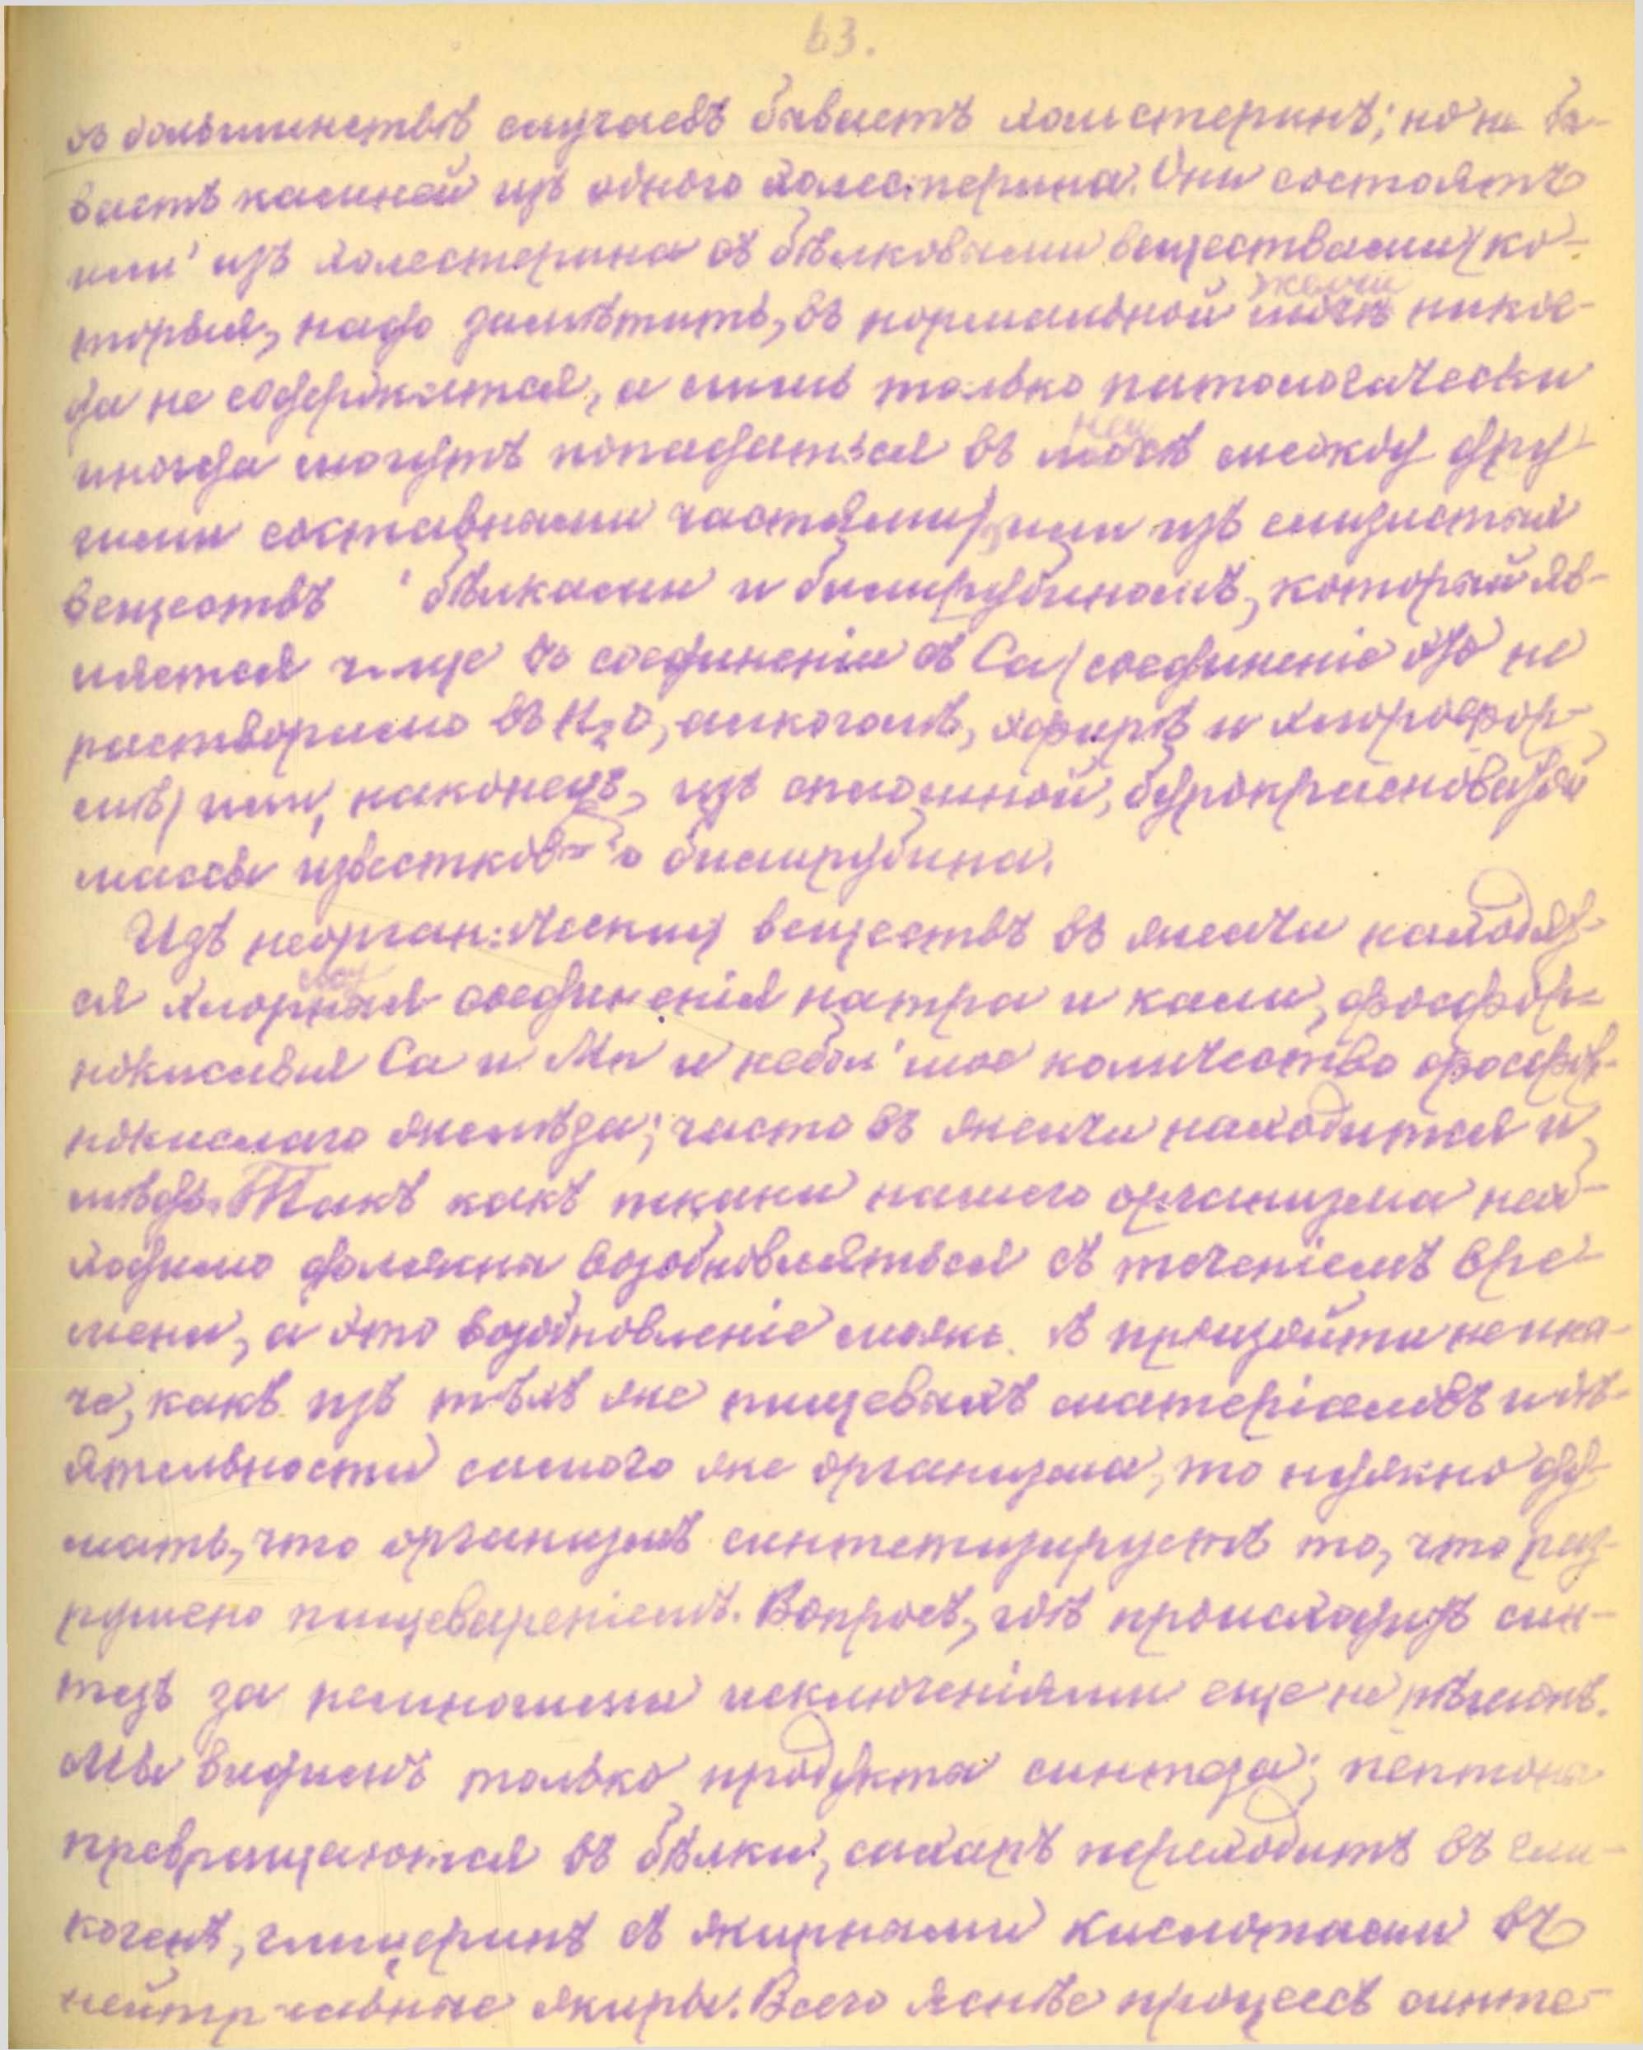 63.
въ большинствѣ случаевъ бываетъ холестеринъ; но не бы-
ваетъ камней изъ одного холестерина. Они состоятъ
или изъ холестерина съ бѣлковыми веществами (ко-
торыя, надо замѣтить, въ нормальной желчи мочѣ никог-
да не содержатся, а лишь только патологически
иногда могутъ попадаться въ ней мочѣ между дру-
гими составными частями), или изъ слизистыхъ
веществъ бѣлками и билирубиномъ, который яв-
ляется чаще въ соединеніи съ Ca (соединеніе это не
растворимо въ H2O, алкоголѣ, эфирѣ и хлорофор-
мѣ) или, наконецъ, изъ сплошной, бурокрасноватой
массы известковаго билирубина.
Изъ неорганическихъ веществъ въ желчи находят-
ся хлорныя соединенія натра и кали, фосфор-
нокислыя Ca и Mn и небольшое количество фосфор-
нокислаго желѣза; часто въ желчи находится и
мѣдь. Такъ какъ ткани нашего организма необ-
ходимо должны возобновляться съ теченіемъ вре-
мени, а это возобновленіе можетъ произойти не ина-
че, какъ изъ тѣхъ же пищевыхъ матеріаловъ и дѣ-
ятельности самого же организма, то нужно ду-
мать, что организмъ синтетизируетъ то, что раз-
рушено пищевареніемъ. Вопросъ, гдѣ происходитъ син-
тезъ за немногими исключеніями еще не рѣшенъ.
Мы видимъ только продукты синтеза; пептоны
превращаются въ бѣлки, сахаръ переходитъ въ гли-
когенъ, глицеринъ съ жирными кислотами въ
нейтральные жиры. Всего яснѣе процессъ синте-